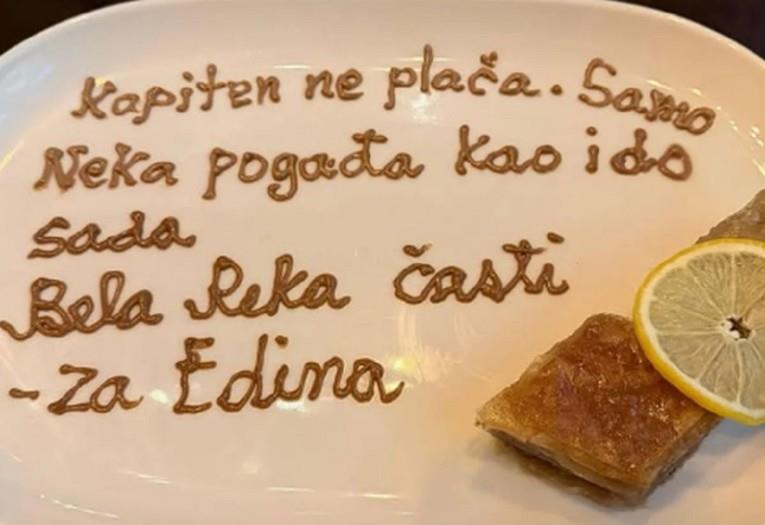 Kapiten ne plača. Samo
Neka pogađa kao i do
sada
Bela Reka časti
- za Edina